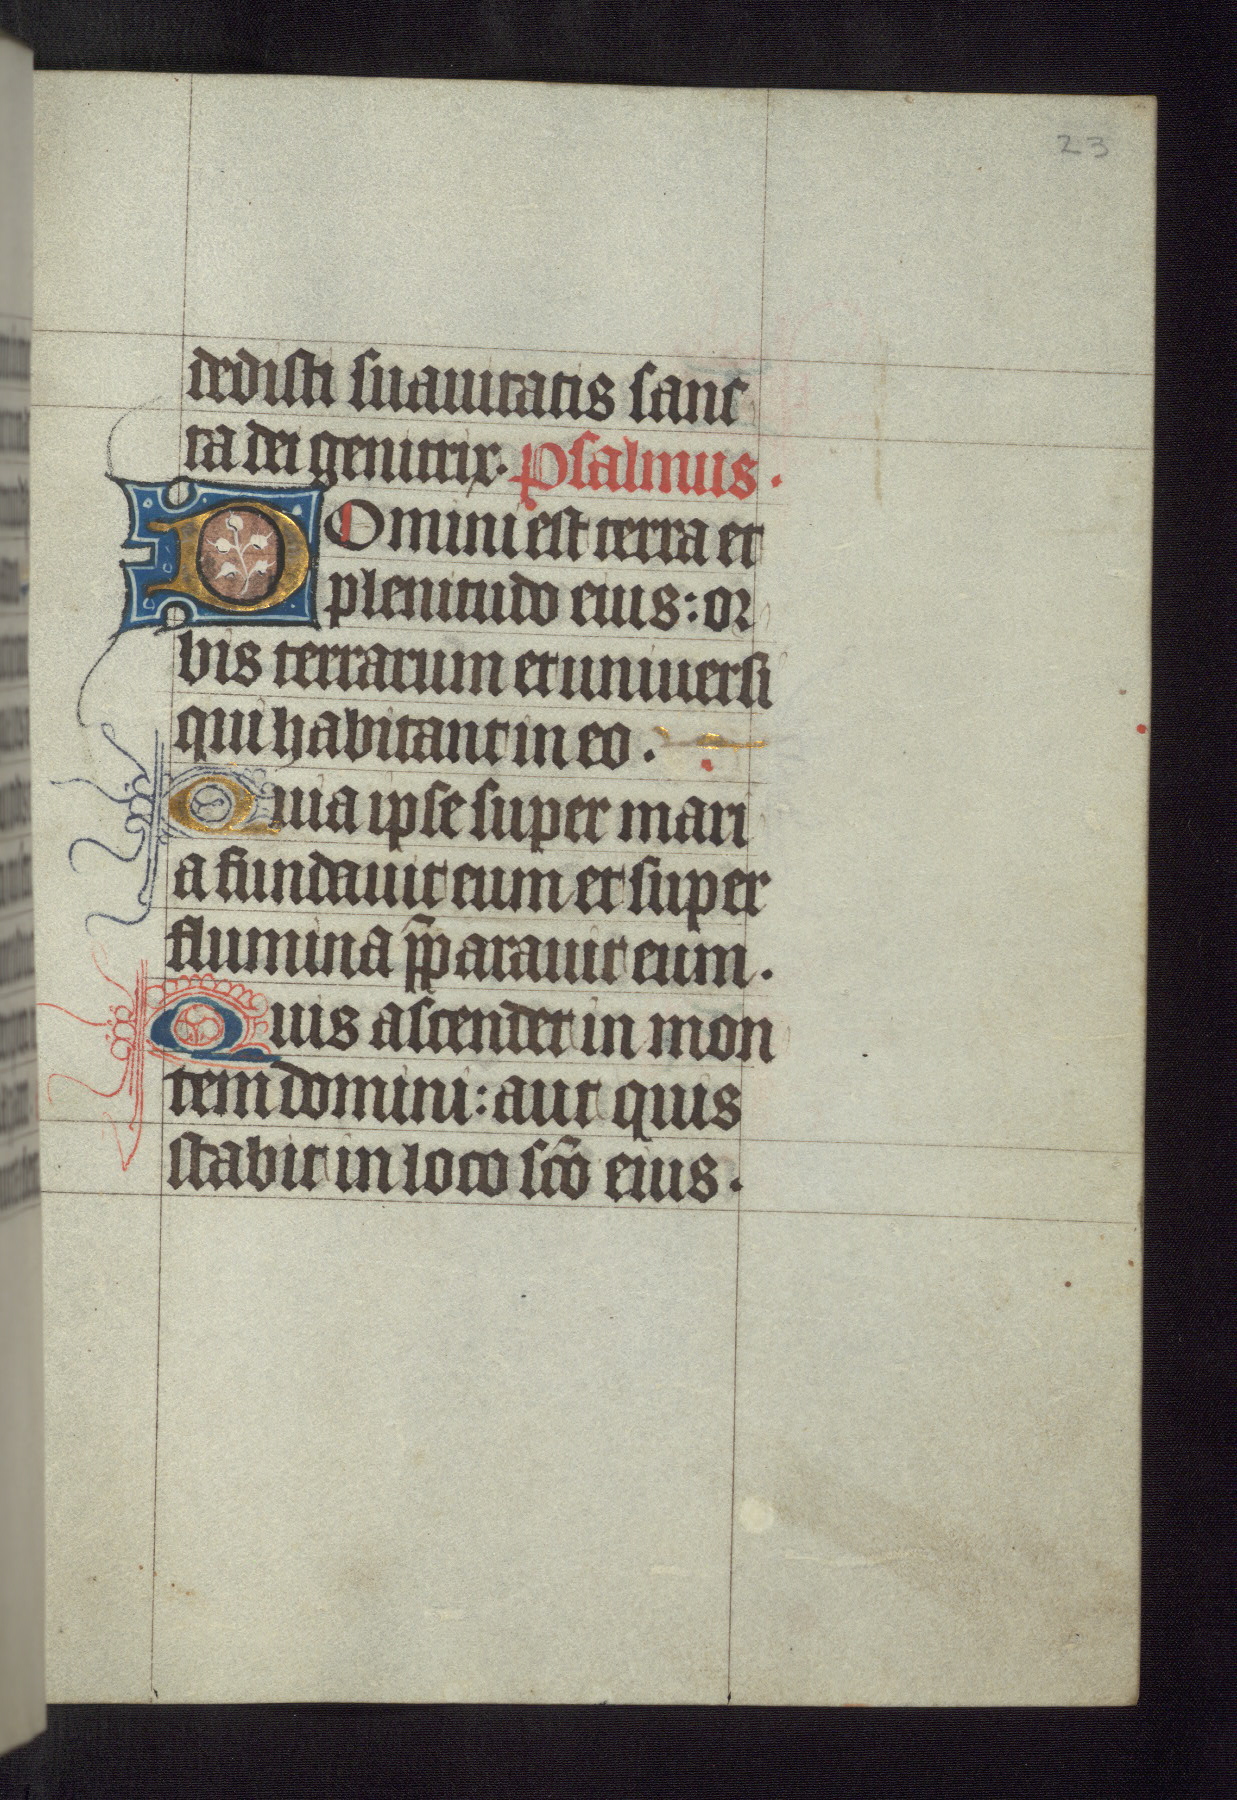 23
dedisti suauitatis sanc
ta dei genitrix. psalmus.
DOmini est terra et
plenitudo eius: or
bis terrarum et uniuersi
qui habitant in eo.
Quia ipse super mari
a fundauit eum et super
flumina p̄parauit eum.
Quis ascendet in mon
tem domini: aut quis
stabit in loco sc̄o eius.